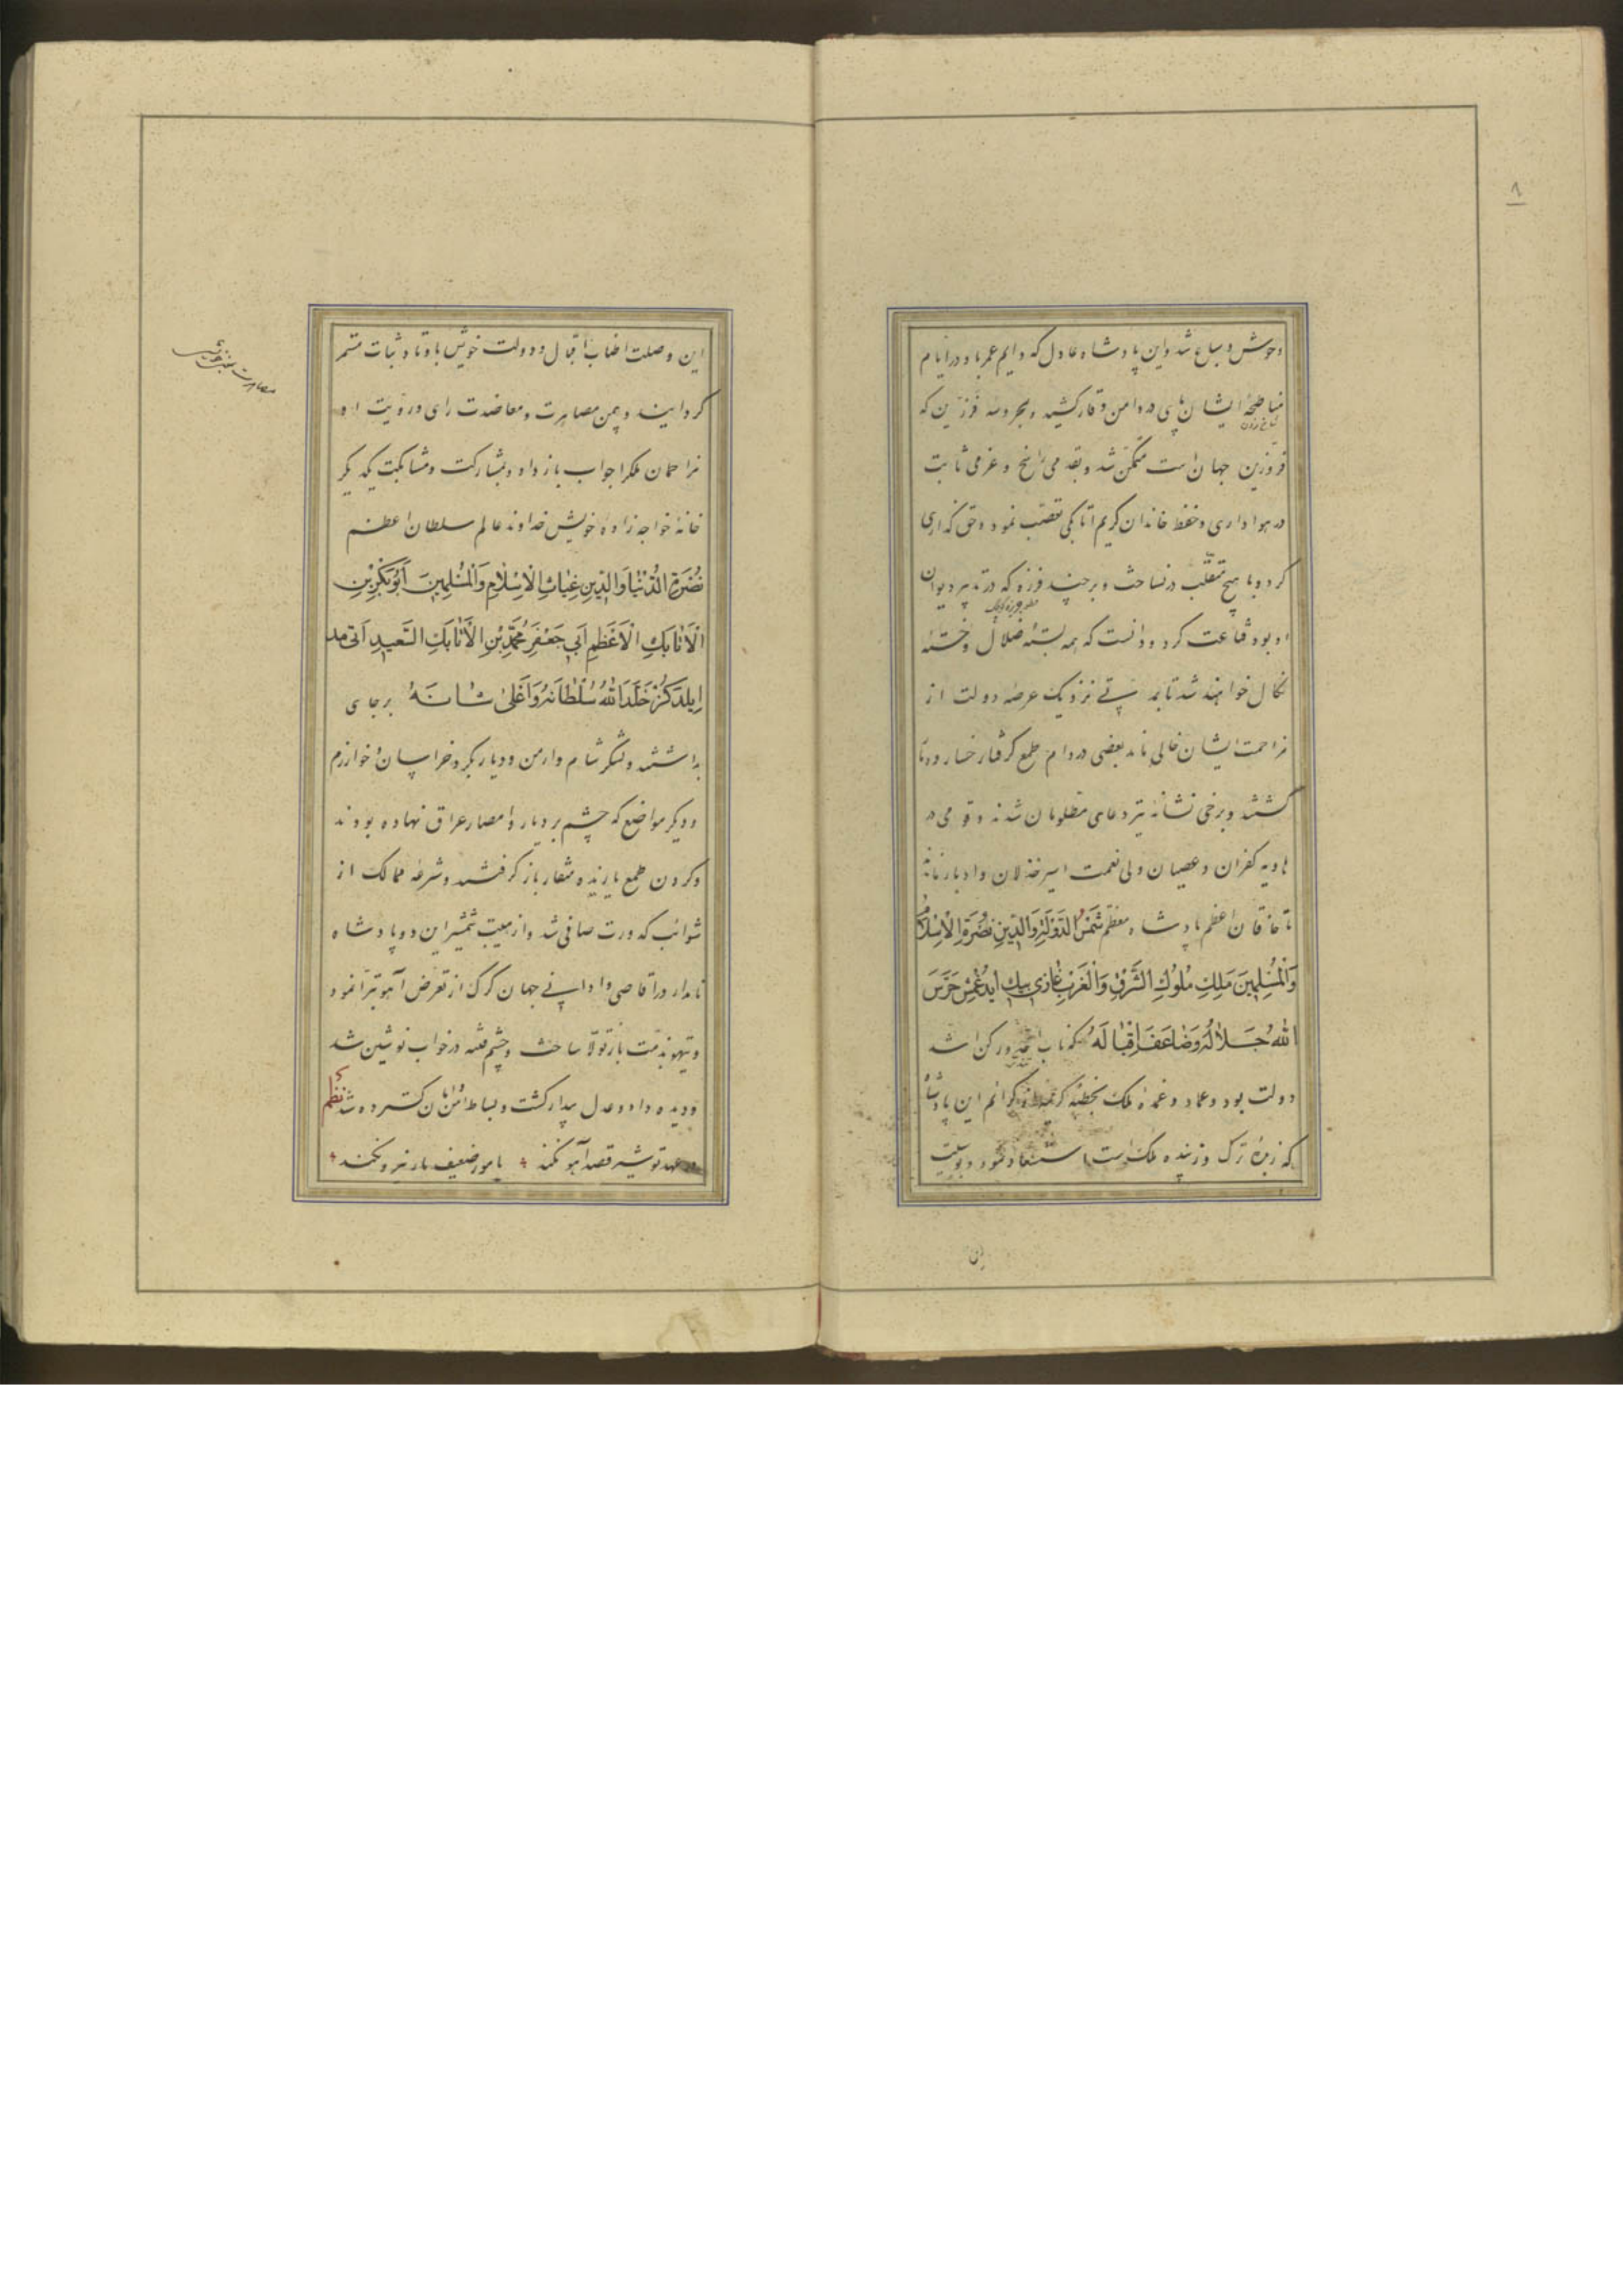 ۸
وحوش و سباع شد و این پادشاه عادل که دایم عمر باد در ایام
مناطحهٔ ایشان پای در دامن وقار کشید و بمحروسه فرزین که
شاخ زدن
فرزین جهان است متمکن شد و بقدمی راسخ و عزمی ثابت
در هواداری و حفظ خاندان کریم اتابکی تعصب نمود و حق گذاری
کرد و با هیچ متقلب در نساخت و بر چند فرزه که در تدبیر دیوان
او بود قناعت کرد و دانست که همه بستهٔ ضلال و خستهٔ
نکال خواهند شد تا بمدتی نزدیک عرصه دولت از
مزاحمت ایشان خالی ماند بعضی در دام طمع گرفتار خسار و
گشتند و برخی نشانه تیر دعای مظلومان شدند و قومی در
هاویه کفران و عصیان ولی نعمت اسیر خذلان و ادبار
تا خاقان اعظم پادشاه معظم شَمْسُ الدَّوْلَةِ وَالدِّينِ نُصْرَةُ الْاِسْلَامِ
وَالْمُسْلِمِينَ مَلِكُ مُلُوكِ الشَّرْقِ وَالْغَرْبِ غازى بيك ايدغمش حَرَسَ
اللهُ جَلَالَهُ وَضَاعَفَ اِقْبَالَهُ که ناب اخیر و رکن اشد
دولت بود و عماد و عمدهٔ ملک بخطبهٔ کریمه از کرائم این پادشاه
که زبدهٔ ترک و زیبنده ملک است استسعاد نمود و بوسیلت
این
این وصلت اطناب اقبال و دولت خویش باوتاد ثبات مستمر
گردانید و بیمن مصاهرت و معاضدت رای و رویت او
مصاهرت
مزاحمان ملک را جواب باز داد و بمشارکت و مشابکت یکدیگر
خانهٔ خواجه زادهٔ خویش خداوند عالم سلطان اعظم
نُصْرَةِ الدُّنْيَا وَالدِّينِ غِيَاثِ الْاِسْلَامِ وَالْمُسْلِمِينَ اَبُوبَكْرِ بْنِ
الْاَتَابَكِ الْاَعْظَمِ اَبِي جَعْفَرٍ مُحَمَّدِ بْنِ الْاَتَابَكِ السَّعِيدِ
اِيلْدَكُزْ خَلَّدَ اللهُ سُلْطَانَهُ وَاَعْلَى شَانَهُ بر جای
بداشتند و لشکر شام و ارمن و دیار بکر و خراسان و خوارزم
و دیگر مواضع که چشم بر دیار و امصار عراق نهاده بودند
و گردن طمع یازیده منقار باز گرفتند و شرعهٔ ممالک از
شوائب کدورت صافی شد و از هیبت شمشیر این دو پادشاه
نامدار در اقاصی و ادانی جهان گرگ از تعرض آهو تبرا نمود
و تیهو بذمت باز تولا ساخت و چشم فتنه در خواب نوشین شد
و دیده داد و عدل بیدار گشت و بساط امن و امان گسترده شد نظم
در عهد تو شیر قصد آهو نکند با مور ضعیف مار نیرو نکند